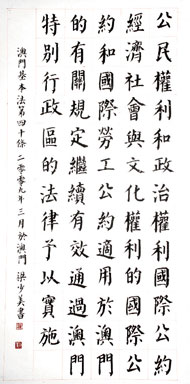 公民權利和政治權利國際公
經濟社會與文化權利的國際公
約和國際勞工公約適用於澳門
的有關規定繼續有效通過澳門
特別行政區的法律予以實施
澳門基本法第四十條 二零零九年三月於澳門 梁少美書